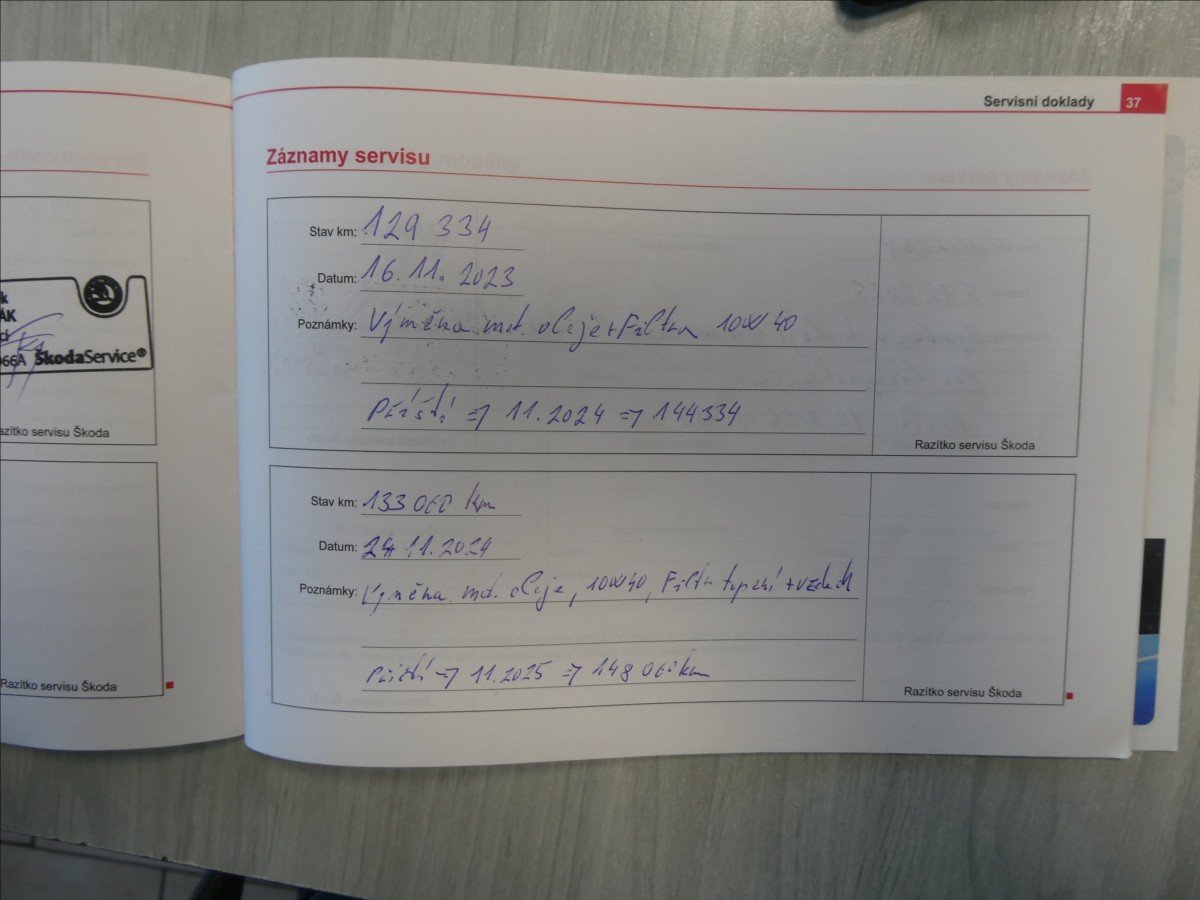 Servisní doklady 37
Záznamy servisu
Stav km: 129 334
Datum: 16.11.2023
Poznámky: Výměna mot. oleje + Filtru 10W40
Příští => 11.2024 => 144334
Razítko servisu Škoda
Stav km: 133 060 km
Datum: 11.2024
Poznámky: Výměna mot. oleje, 10W40, Filtr +
Příští => 11.2025 => 148 060 km
Razítko servisu Škoda
k
ÁK
cí
066A ŠkodaService®
azítko servisu Škoda
Razítko servisu Škoda